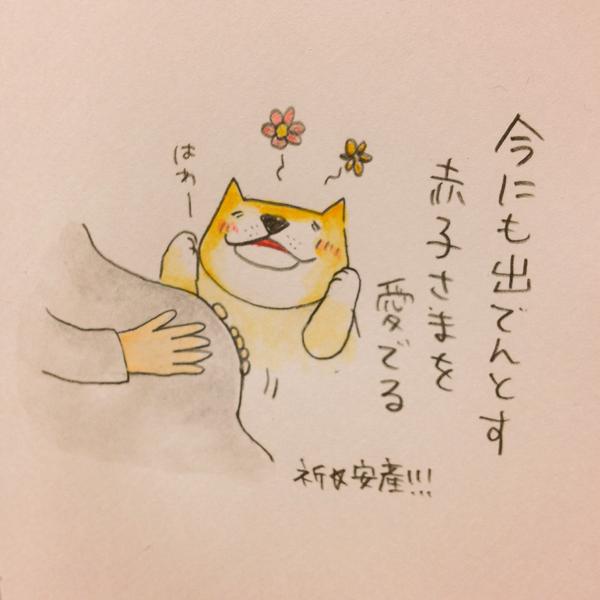 今にも出でんとす
赤子さまを
愛でる
はわー
祈安産!!!